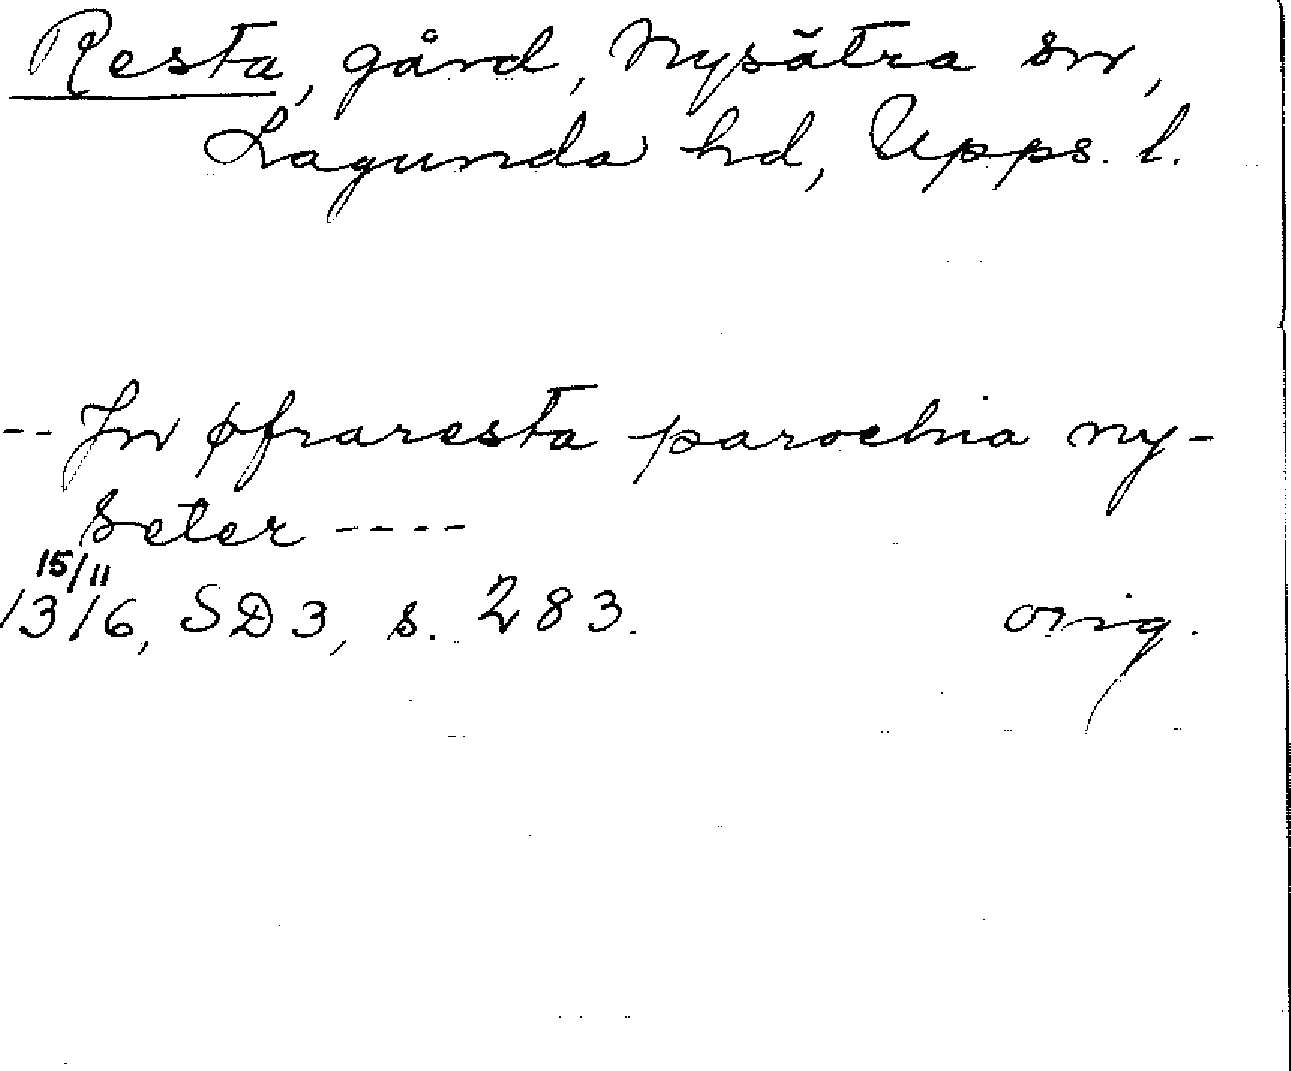 Resta, gård, Nysätra sn,
Lagunda hd, Upps. l.
-- Jn øfraresta parochia ny-
seter ----
15/11
1316, SD3, s. 283. orig.